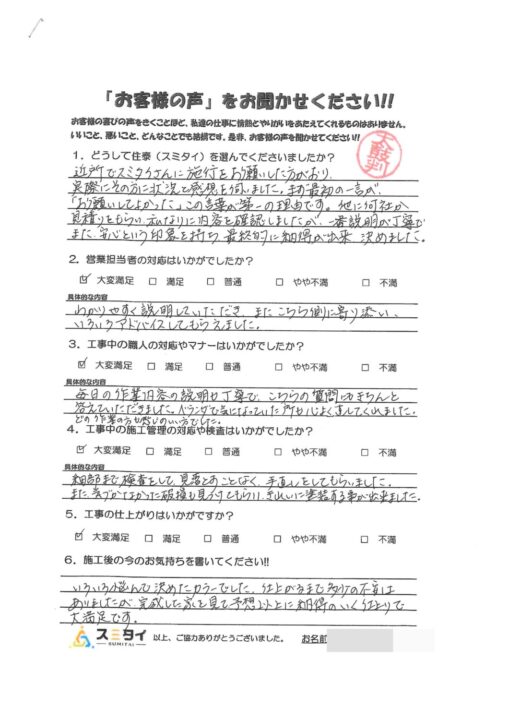 「お客様の声」をお聞かせください!!
お客様の喜びの声をきくことほど、私達の仕事に情熱とやりがいをあたえてくれるものはありません。
いいこと、悪いこと、どんなことでも結構です。是非、お客様の声を聞かせてください!!
太鼓判
1．どうして住泰（スミタイ）を選んでくださいましたか？
近所でスミタイさんに施行をお願いした方がおり、
実際にその方に状況と感想を伺いました。まず最初の一言が、
「お願いしてよかった」この言葉が第一の理由です。他に何社か
見積りをもらい、私なりに内容を確認しましたが、一番説明が丁寧で
また、安心という印象を持ち、最終的に納得が出来、決めました。
2．営業担当者の対応はいかがでしたか？
☑ 大変満足 □ 満足 □ 普通 □ やや不満 □ 不満
具体的な内容
わかりやすく説明していただき、またこちら側に寄り添い、
いろいろアドバイスしてもらえました。
3．工事中の職人の対応やマナーはいかがでしたか？
☑ 大変満足 □ 満足 □ 普通 □ やや不満 □ 不満
具体的な内容
毎日の作業内容の説明も丁寧で、こちらの質問にもきちんと
答えていただきました。ベランダで気になっていた所も心よく直してくれました。
どの作業の方も感じのいい方でした。
4．工事中の施工管理の対応や検査はいかがでしたか？
☑ 大変満足 □ 満足 □ 普通 □ やや不満 □ 不満
具体的な内容
細部まで検査をして、見落とすことなく、手直しをしてもらいました。
また、気づかなかった破損も見つけてもらい、きれいに塗装する事が出来ました。
5．工事の仕上がりはいかがですか？
☑ 大変満足 □ 満足 □ 普通 □ やや不満 □ 不満
6．施工後の今のお気持ちを書いてください!!
いろいろ悩んで決めたカラーでした。仕上がるまで多少の不安は
ありましたが、完成した家を見て予想以上に納得のいく仕上りで
大満足です。
スミタイ 以上、ご協力ありがとうございました。 お名前
SUMITAI